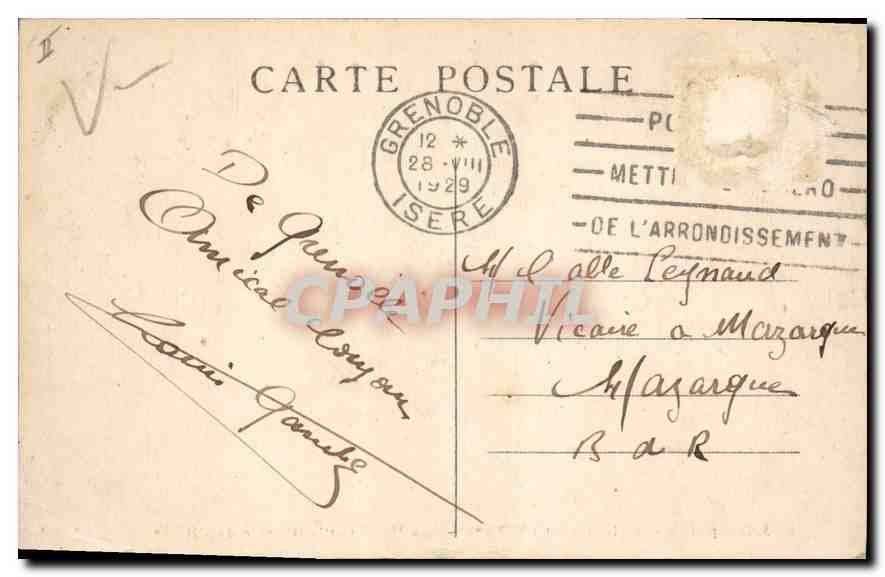 II
CARTE POSTALE
GRENOBLE
12 *
28 - VIII
1929
ISERE
METT
DE L'ARRONDISSEMENT
De Grenoble
Amical
Louis
CPAPHIL
M l'abbé Leynaud
Vicaire a Mazargue
Mazargues
B d R